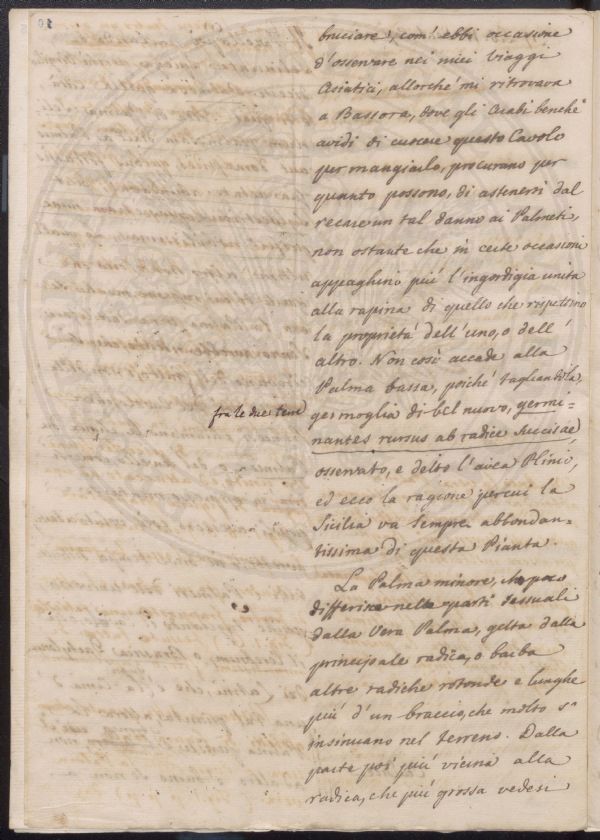 10
bruciare, com' ebbi occasione
d'osservare nei miei Viaggi
Asiatici, allorché mi ritrovava
a Bassora, dove gli Arabi benché
avidi di cuocere questo Cavolo
per mangiarlo, procurano per
quanto possono, di astenersi dal
recare un tal danno ai Palmeti,
non ostante che in certe occasioni
appaghino piú l'ingordigia unita
alla rapina di quello che rispettino
la proprietá dell'uno, o dell'
altro. Non cosí accade alla
Palma bassa, poiché tagliandola,
germoglia di bel nuovo, germi=
fra le due terre
nantes rursus ab radice succisae
osservato, e detto l'avea Plinio,
ed ecco la ragione percui la
Sicilia va sempre abbondan=
tissima di questa Pianta.
La Palma minore, che poco
differisce nelle parti sessuali
dalla Vera Palma, getta dalla
principale radica, o barba
altre radiche rotonde e lunghe
piú d'un braccio, che molto s'
insinuano nel terreno. Dalla
parte poi piú vicina alla
radica, che piú grossa vedesi